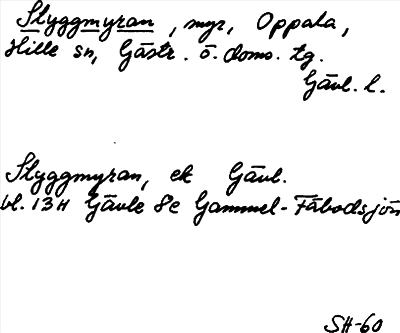 Styggmyran, myr, Oppala,
Hille sn, Gästr. ö. doms. tg.
Gävl. l.
Styggmyran, ek Gävl.
bl. 13H Gävle 8e Gammel-Fäbodsjön
SH-60